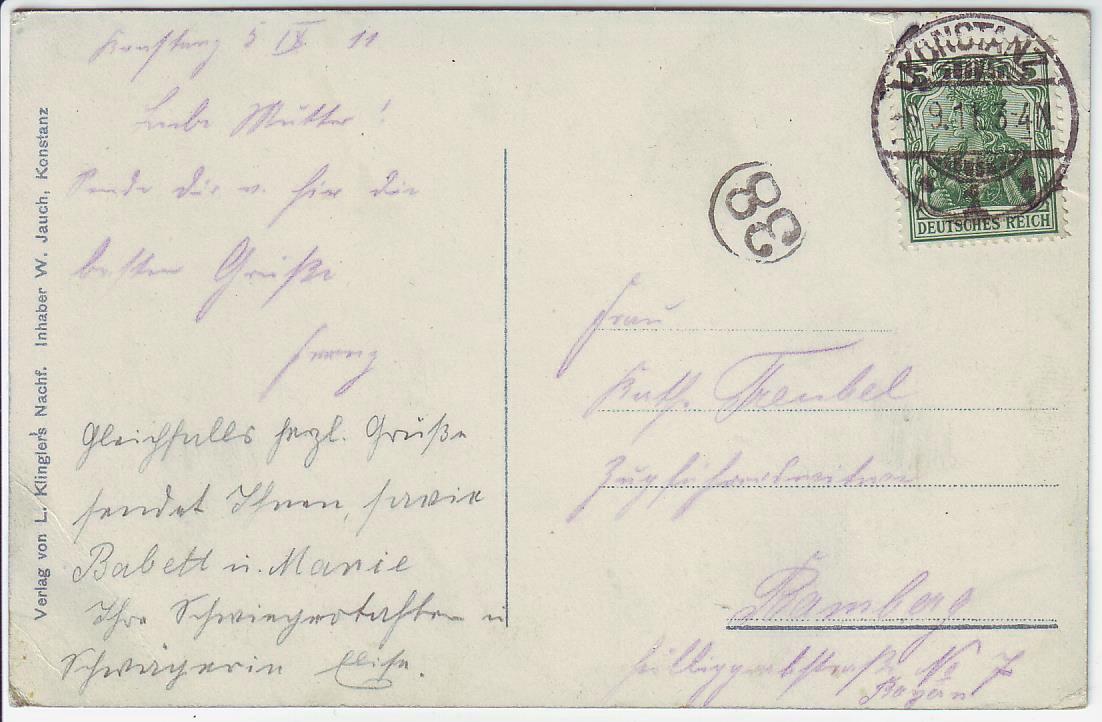 Verlag von L. Klingler's Nachf. Inhaber W. Jauch, Konstanz
Konstanz 5 IX 11
Liebe Mutter!
Sende dir v. hier die
besten Grüße
Gleichfalls herzl. Grüße
sendet Ihnen, sowie
Babett u. Marie
Ihre Schwiegertochter u
Schwägerin Elise.
KONSTANZ
9.11. 3-4 N
5 5
DEUTSCHES REICH
38
Frau
Kath. Treubel
Zugführerswitwe
Bamberg
No 7
Bayern